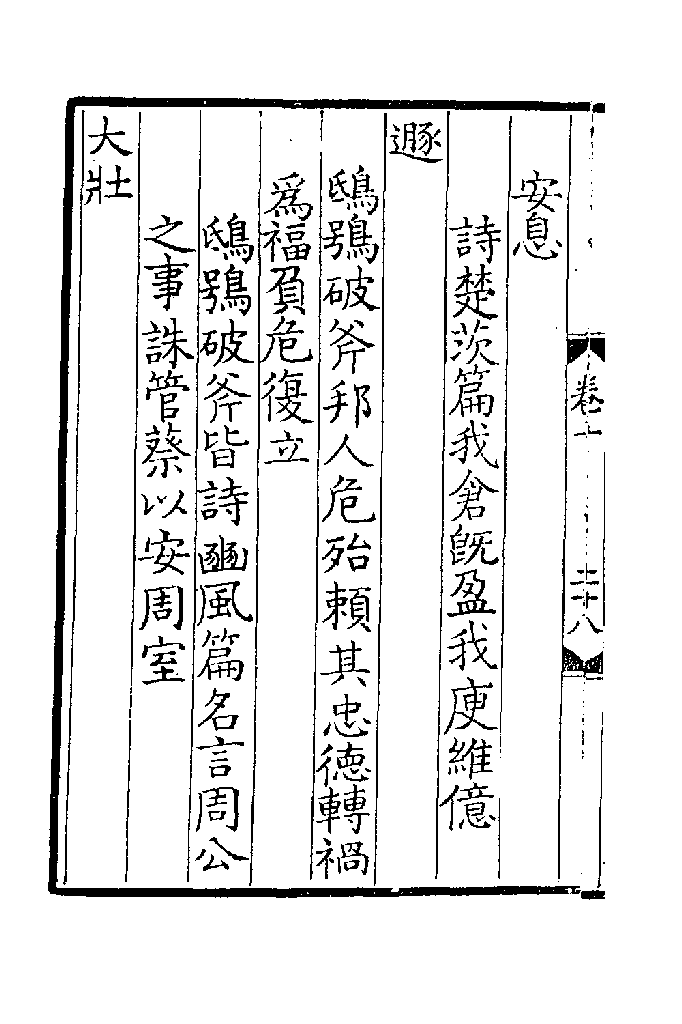 卷十
二十八
安息
詩楚茨篇我倉旣盈我庾維億
遯
鴟鴞破斧邦人危殆賴其忠德轉禍
爲福負危復立
鴟鴞破斧皆詩豳風篇名言周公
之事誅管蔡以安周室
大壯